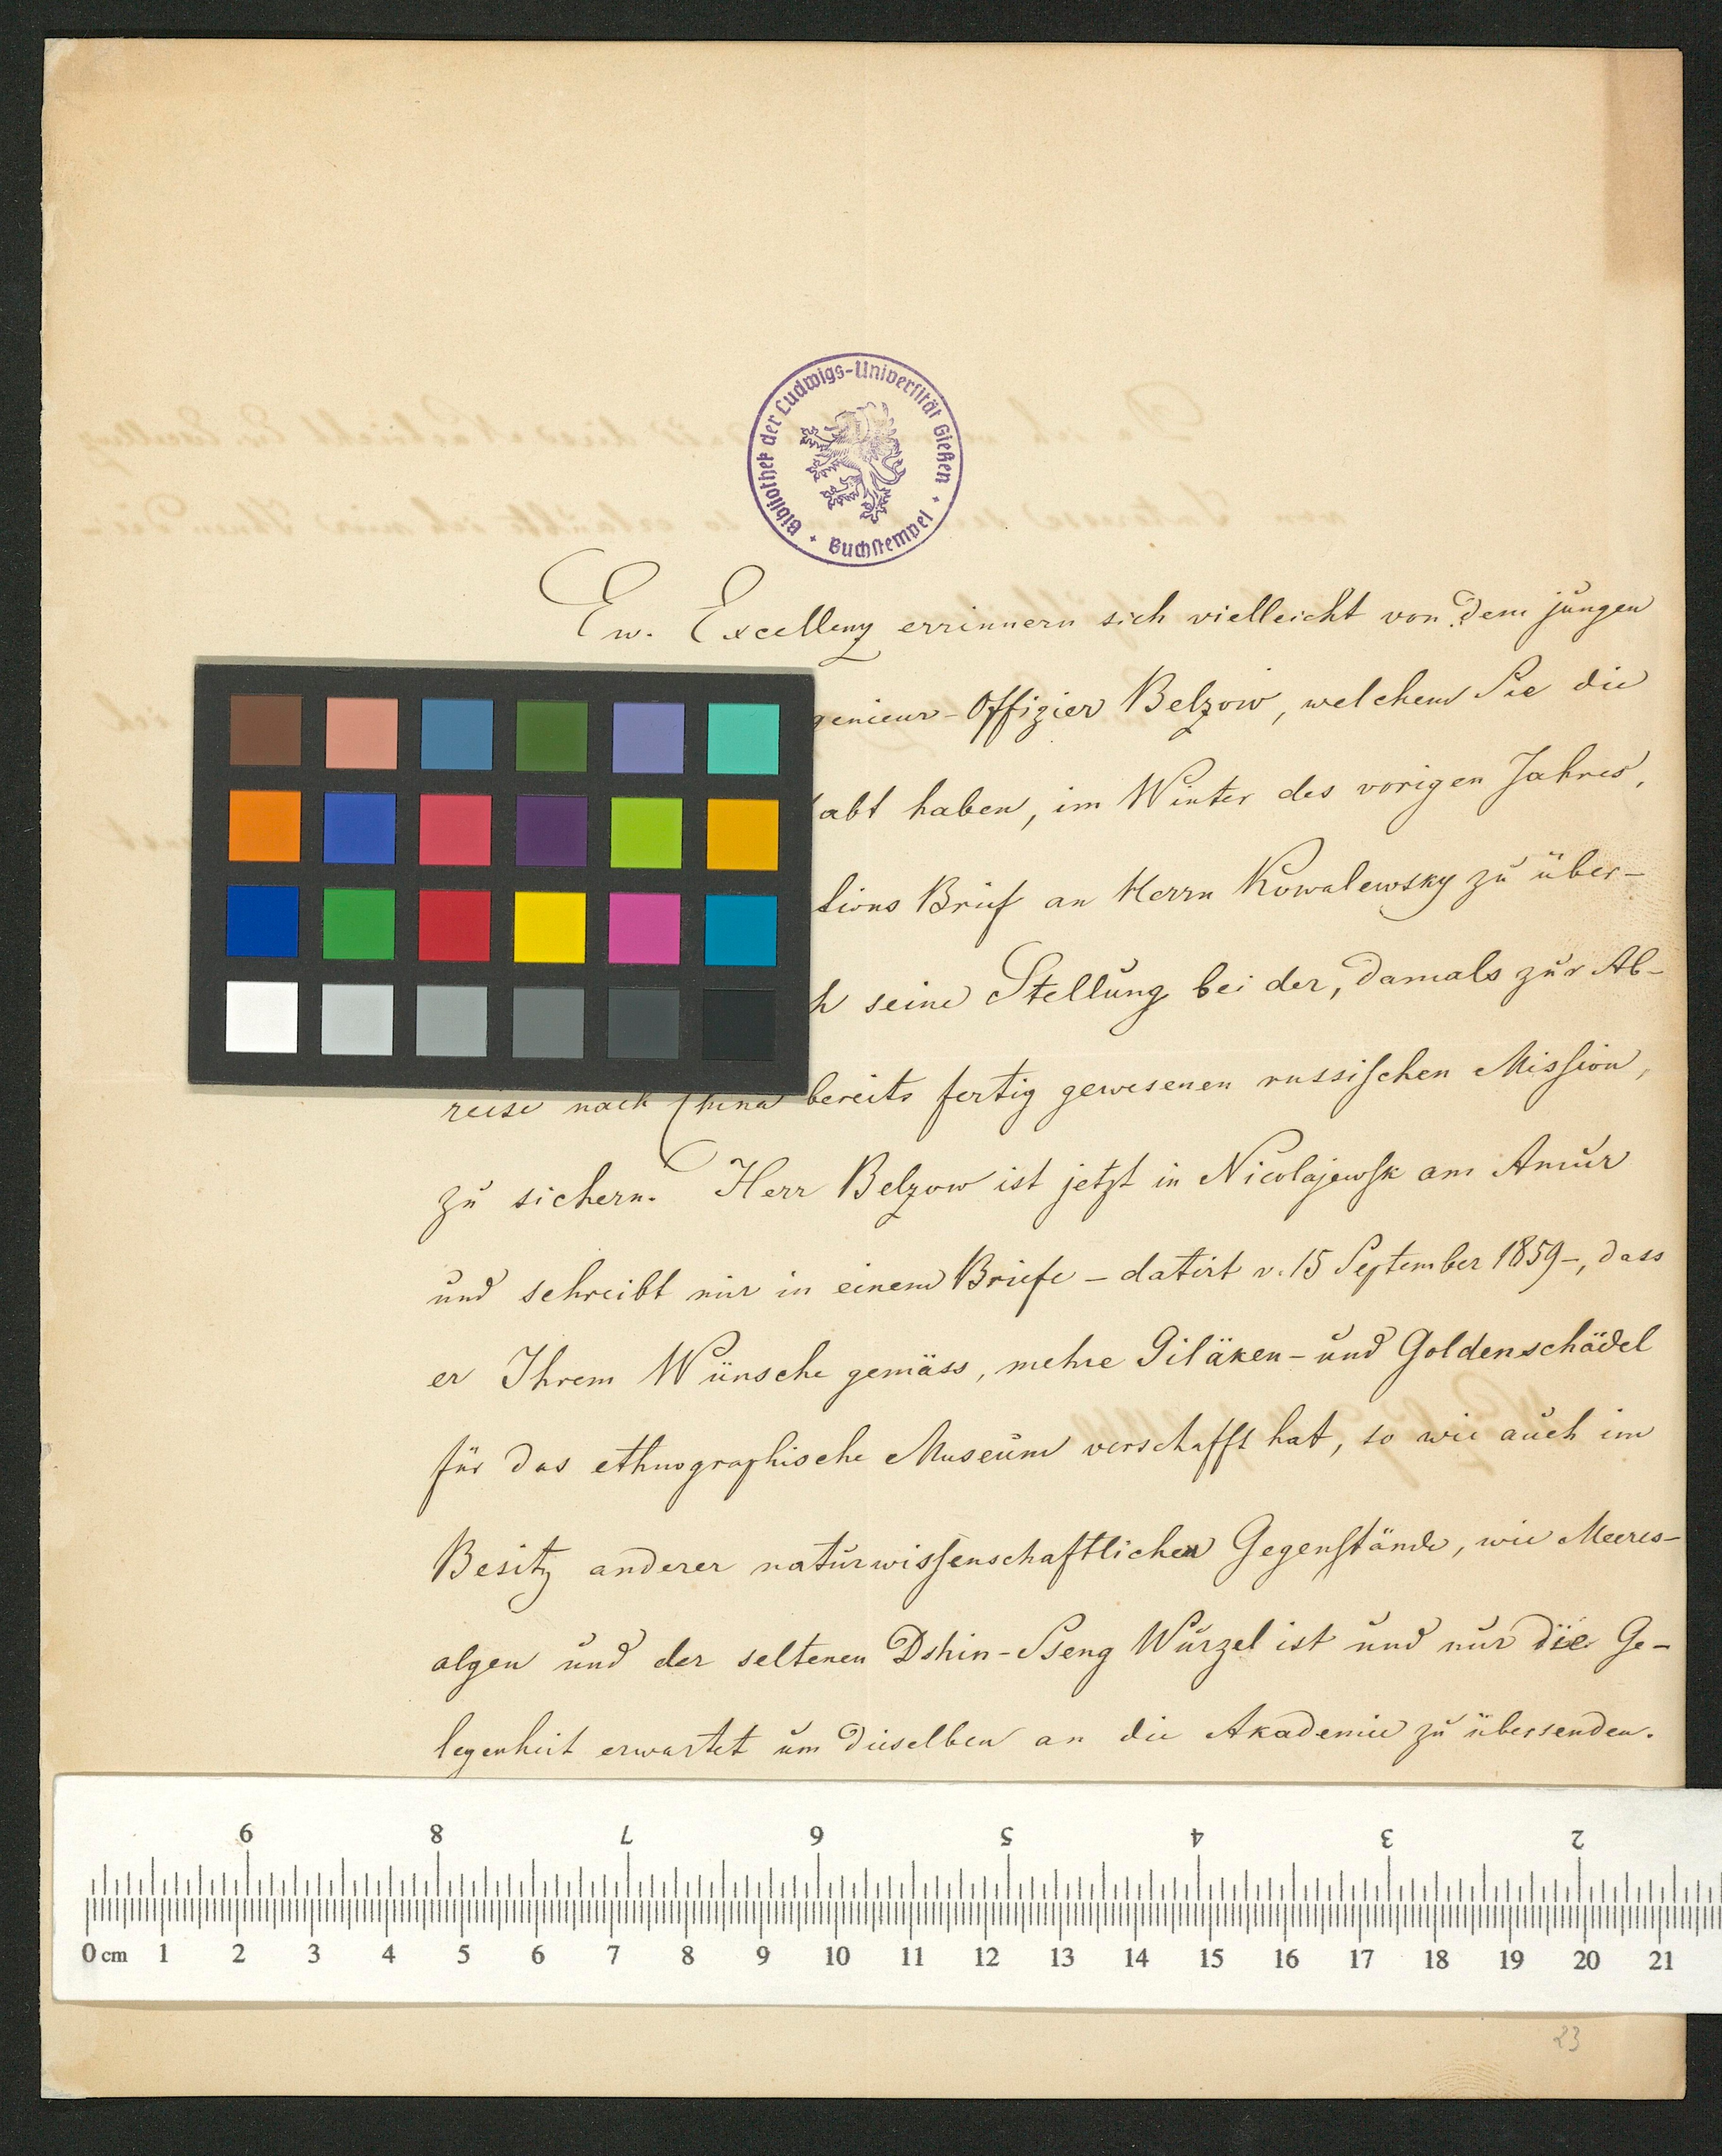 Bibliothek der Ludwigs-Universität Gießen
Buchstempel
Ew. Excellenz errinnern sich vielleicht von dem jungen
genieur-Offizier Belzow, welchem Sie die
abt haben, im Winter des vorigen Jahres,
tions Brief an Herrn Kowalewsky zu über-
h seine Stellung bei der, damals zur Ab-
reise nach China bereits fertig gewesenen russischen Mission,
zu sichern. Herr Belzow ist jetzt in Nicolajewsk am Amur
und schreibt mir in einem Briefe – datirt v. 15 September 1859 –, dass
er Ihrem Wunsche gemäss, mehre Giläken- und Goldenschädel
für das ethnographische Museum verschafft hat, so wie auch im
Besitz anderer naturwissenschaftlichen Gegenstände, wie Meeres-
algen und der seltenen Dshin-Sseng Wurzel ist und nur die Ge-
legenheit erwartet um dieselben an die Akademie zu übersenden.
9 8 7 6 5 4 3 2
0 cm 1 2 3 4 5 6 7 8 9 10 11 12 13 14 15 16 17 18 19 20 21
23